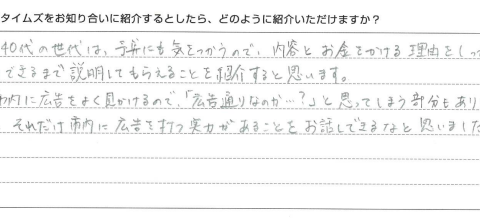 タイムズをお知り合いに紹介するとしたら、どのように紹介いただけますか？
40代の世代は、予算にも気をつかうので、内容とお金をかける理由をしっ
できるまで説明してもらえることを紹介すると思います。
内に広告をよく見かけるので、「広告通りなのか…？」と思ってしまう部分もあり
それだけ市内に広告を打つ実力があることをお話しできるなと思いました